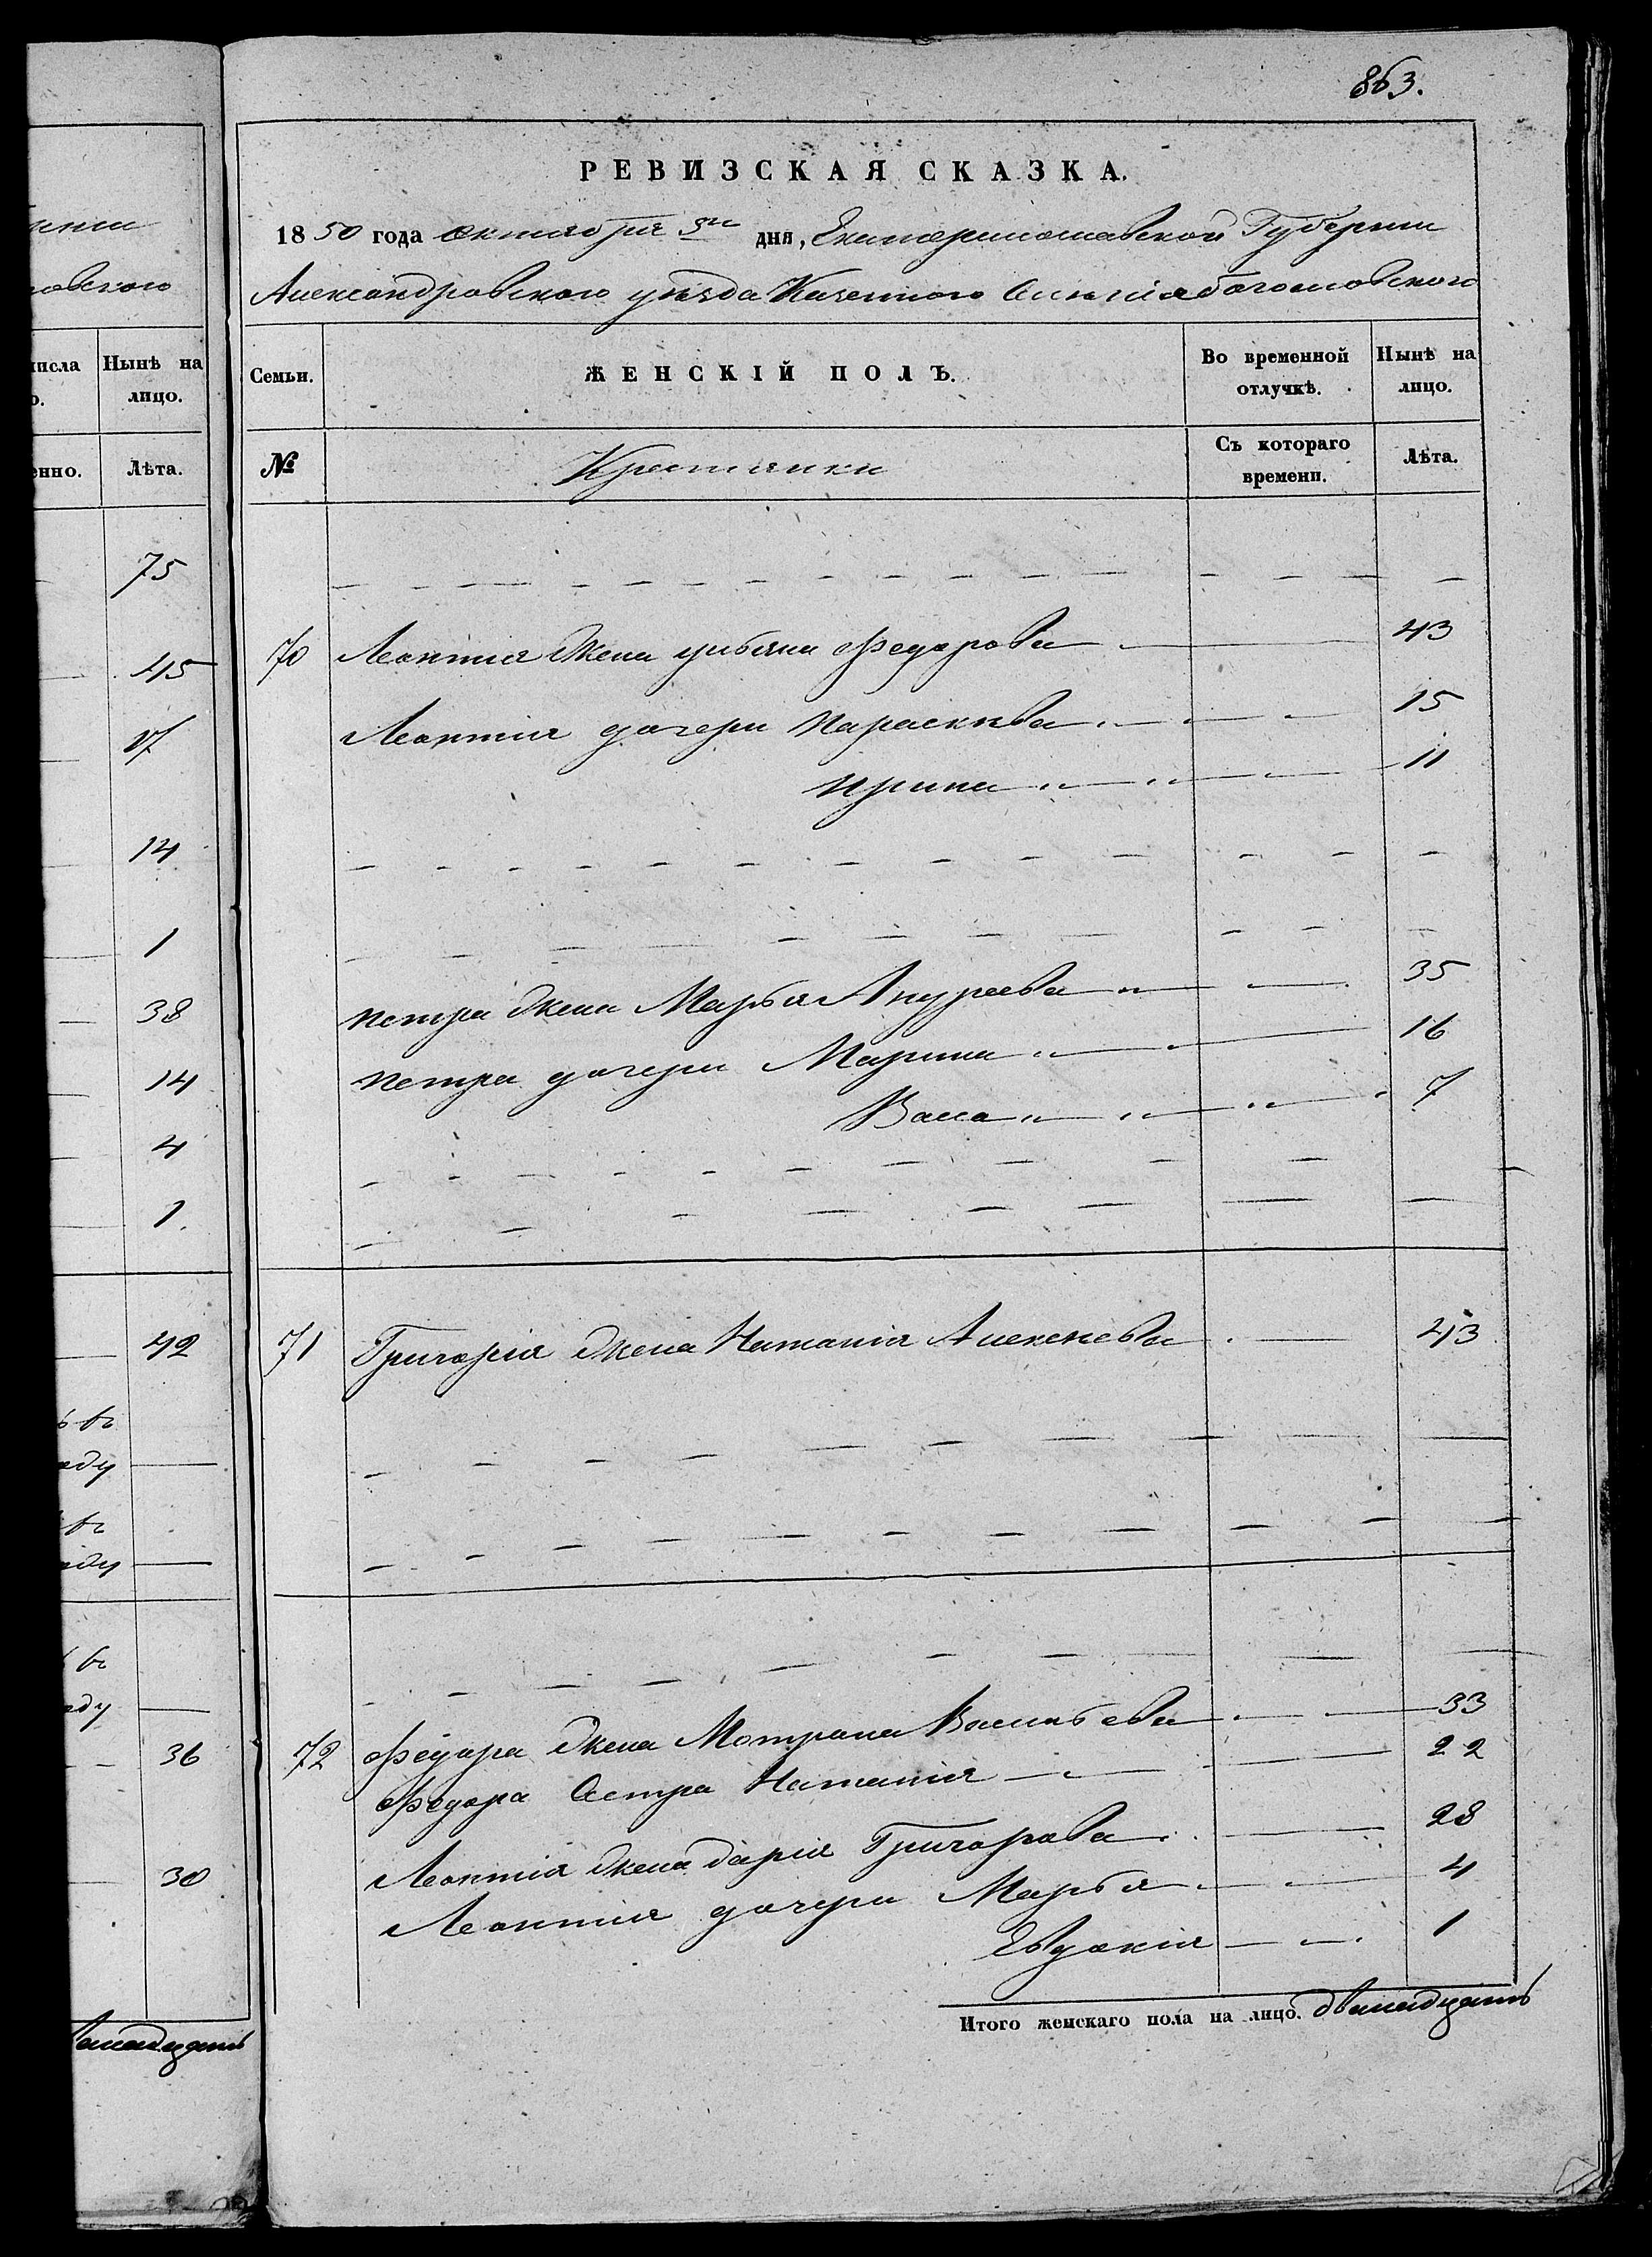 нии
ловскаго
числа
о.
Нынѣ на
лицо.
енно.
Лѣта.
75
45
17
14
1
38
14
4
1
42
ь въ
оду
въ
оду
ь въ
оду
36
30
двенадцать
863.
РЕВИЗСКАЯ СКАЗКА.
1850 года октября 3го дня, Екатеринославской Губернии
Александровского уѣзда Казенного Селенія богословского
Семьи.
ЖЕНСКІЙ ПОЛЪ.
Во временной
отлучкѣ.
Нынѣ на
лицо.
№
Крестянки
Съ котораго
времени.
Лѣта.
70 Леонтия Жена ульяна Федорова 43
Леонтия дочери параскева 15
ирина 11
петра Жена Марья Андреева 35
петра дочери Марина 16
Васса 7
71 Григорія Жена Наталія Алексеева 43
72 Федора Жена Мотрона Васильева 33
Федора Сестра Наталія 22
Леонтія Жена дарія Григорова 28
Леонтия дочери Марья 4
Евдокія 1
Итого женскаго пола на лицо. двенадцать